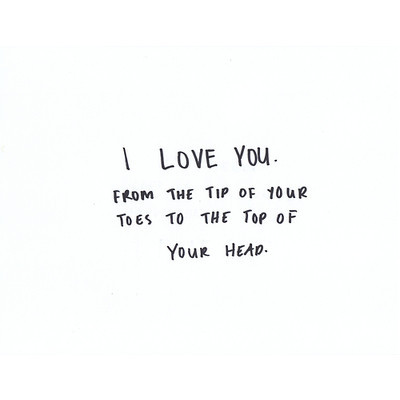 I LOVE YOU.
FROM THE TIP OF YOUR
TOES TO THE TOP OF
YOUR HEAD.